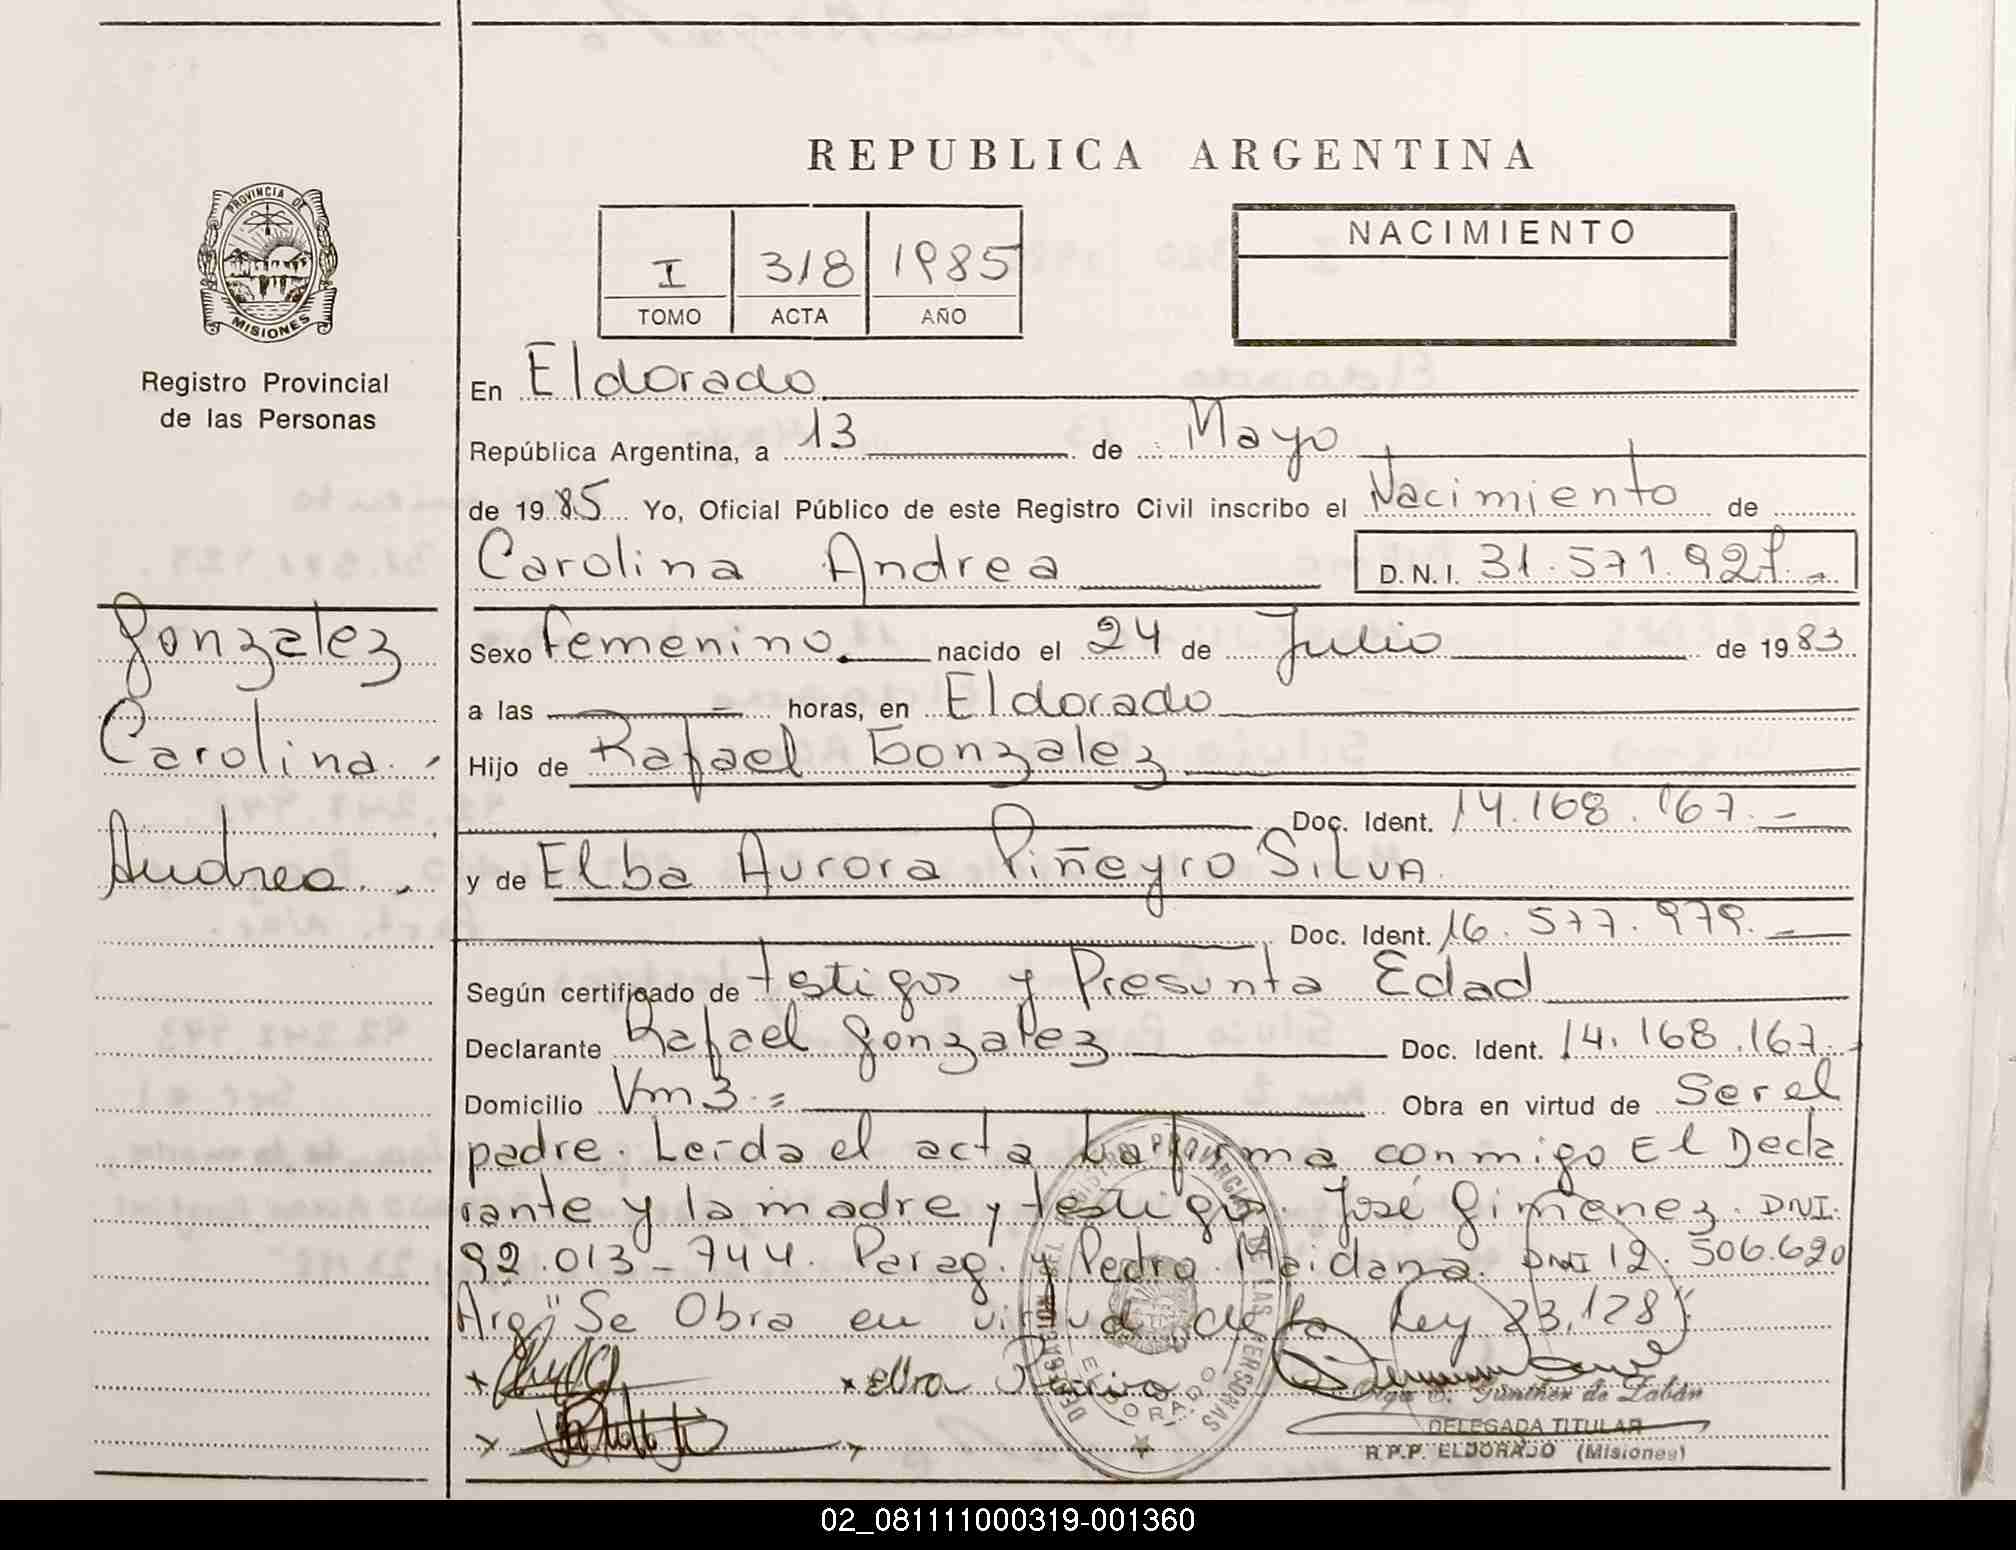 REPUBLICA ARGENTINA
PROVINCIA DE
MISIONES
Registro Provincial
de las Personas
I 318 1985
TOMO ACTA AÑO
NACIMIENTO
En Eldorado
República Argentina, a 13 de Mayo
de 1985 Yo, Oficial Público de este Registro Civil inscribo el Nacimiento de
Carolina Andrea D.N.I. 31.571.927.-
Gonzalez
Carolina.
Andrea.
Sexo femenino. nacido el 24 de Julio de 1983
a las - horas, en Eldorado
Hijo de Rafael Gonzalez
Doc. Ident. 14.168.167.-
y de Elba Aurora Piñeyro SILVA
Doc. Ident. 16.577.979.-
Según certificado de testigos y Presunta Edad
Declarante Rafael Gonzalez Doc. Ident. 14.168.167.-
Domicilio Vm3.= Obra en virtud de Ser el
padre. Leída el acta la firma conmigo El Decla
rante y la madre y testigos. José Gimenez. DNI.
92.013-744. Parag. y Pedro Maidana. DNI 12.506.620
Arg "Se Obra en virtud de la Ley 23,128"
elba
REGISTRO PROVINCIAL DE LAS PERSONAS
ELDORADO
Olga Gunther de Zabán
DELEGADA TITULAR
R.P.P. ELDORADO (Misiones)
02_081111000319-001360